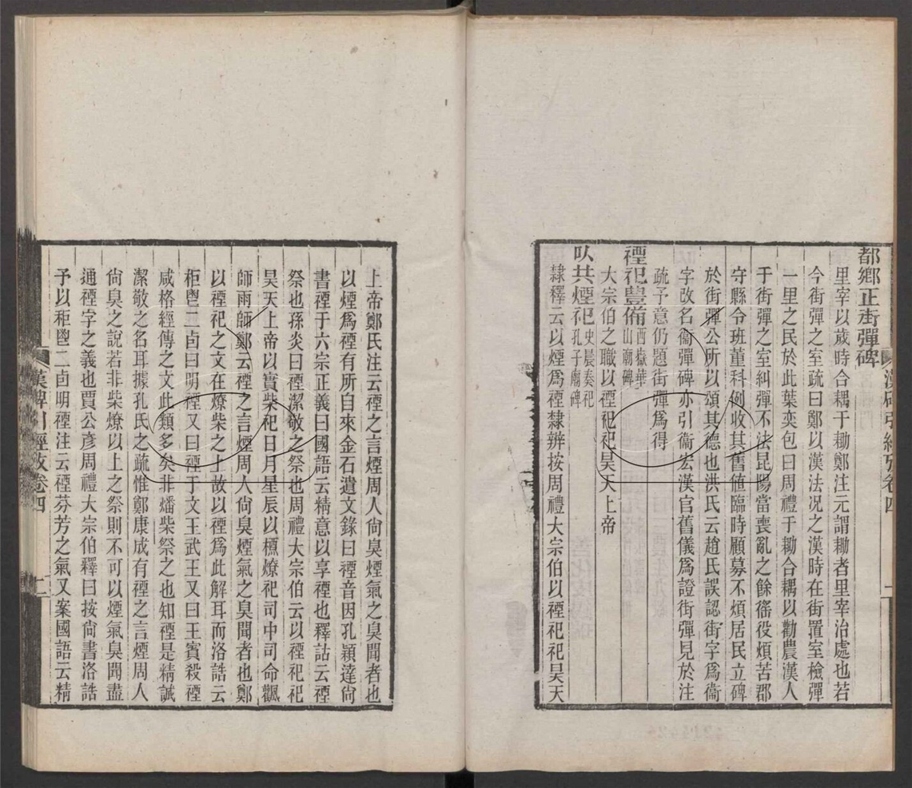 都鄉正街彈碑
里宰以歲時合耦于耡鄭注元謂耡者里宰治處也若
今街彈之室疏曰鄭以漢法況之漢時在街置室檢彈
一里之民於此葉奕包曰周禮于耡合耦以勸農漢人
于街彈之室糾彈不法昆陽當喪亂之餘徭役煩苦郡
守縣令班董科例收其舊値臨時顧募不煩居民立碑
於街彈公所以頌其德也洪氏云趙氏誤認街字爲衞
字改名衞彈碑亦引衞宏漢官舊儀爲證街彈見於注
疏予意仍題街彈爲得
禋祀豐備西嶽華山廟碑
大宗伯之職以禋祀祀昊天上帝
㠯共煙祀史晨奏祀孔子廟碑
隸釋云以煙爲禋隸辨按周禮大宗伯以禋祀祀昊天
漢碑引經攷卷四
上帝鄭氏注云禋之言煙周人尙臭煙氣之臭聞者也
以煙爲禋有所自來金石遺文錄曰禋音因孔穎達尙
書禋于六宗正義曰國語云精意以享禋也釋詁云禋
祭也孫炎曰禋潔敬之祭也周禮大宗伯云以禋祀祀
昊天上帝以實柴祀日月星辰以槱燎祀司中司命飌
師雨師鄭云禋之言煙周人尙臭煙氣之臭聞者也鄭
以禋祀之文在燎柴之上故以禋爲此解耳而洛誥云
秬鬯二卣曰明禋又曰禋于文王武王又曰王賓殺禋
咸格經傳之文此類多矣非燔柴祭之也知禋是精誠
潔敬之名耳據孔氏之疏惟鄭康成有禋之言煙周人
尙臭之說若非柴燎以上之祭則不可以煙氣臭聞盡
通禋字之義也賈公彥周禮大宗伯釋曰按尙書洛誥
予以秬鬯二卣明禋注云禋芬芳之氣又案國語云精
漢碑引經攷卷四
二